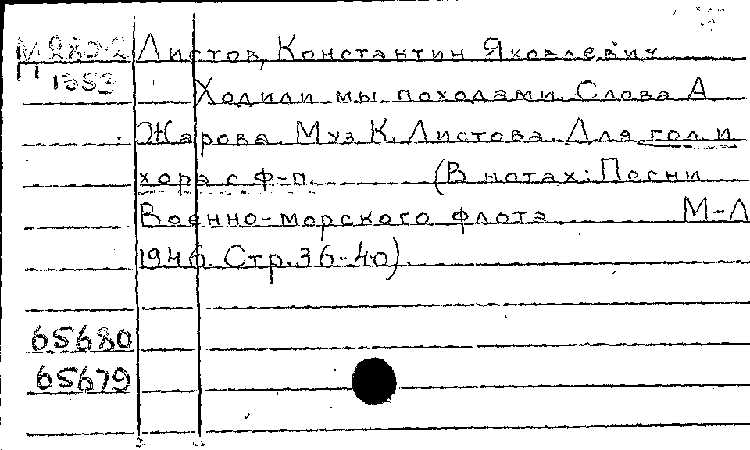 М 280-2 Листов, Константин Яковлевич
П 1353 Ходили мы походами. Слова А
Жарова. Муз К. Листова. Для гол. и
хора с ф-п. (В нотах: Песни
Военно-морского флота М-Л
1946. Стр. 36-40).
65680
65679